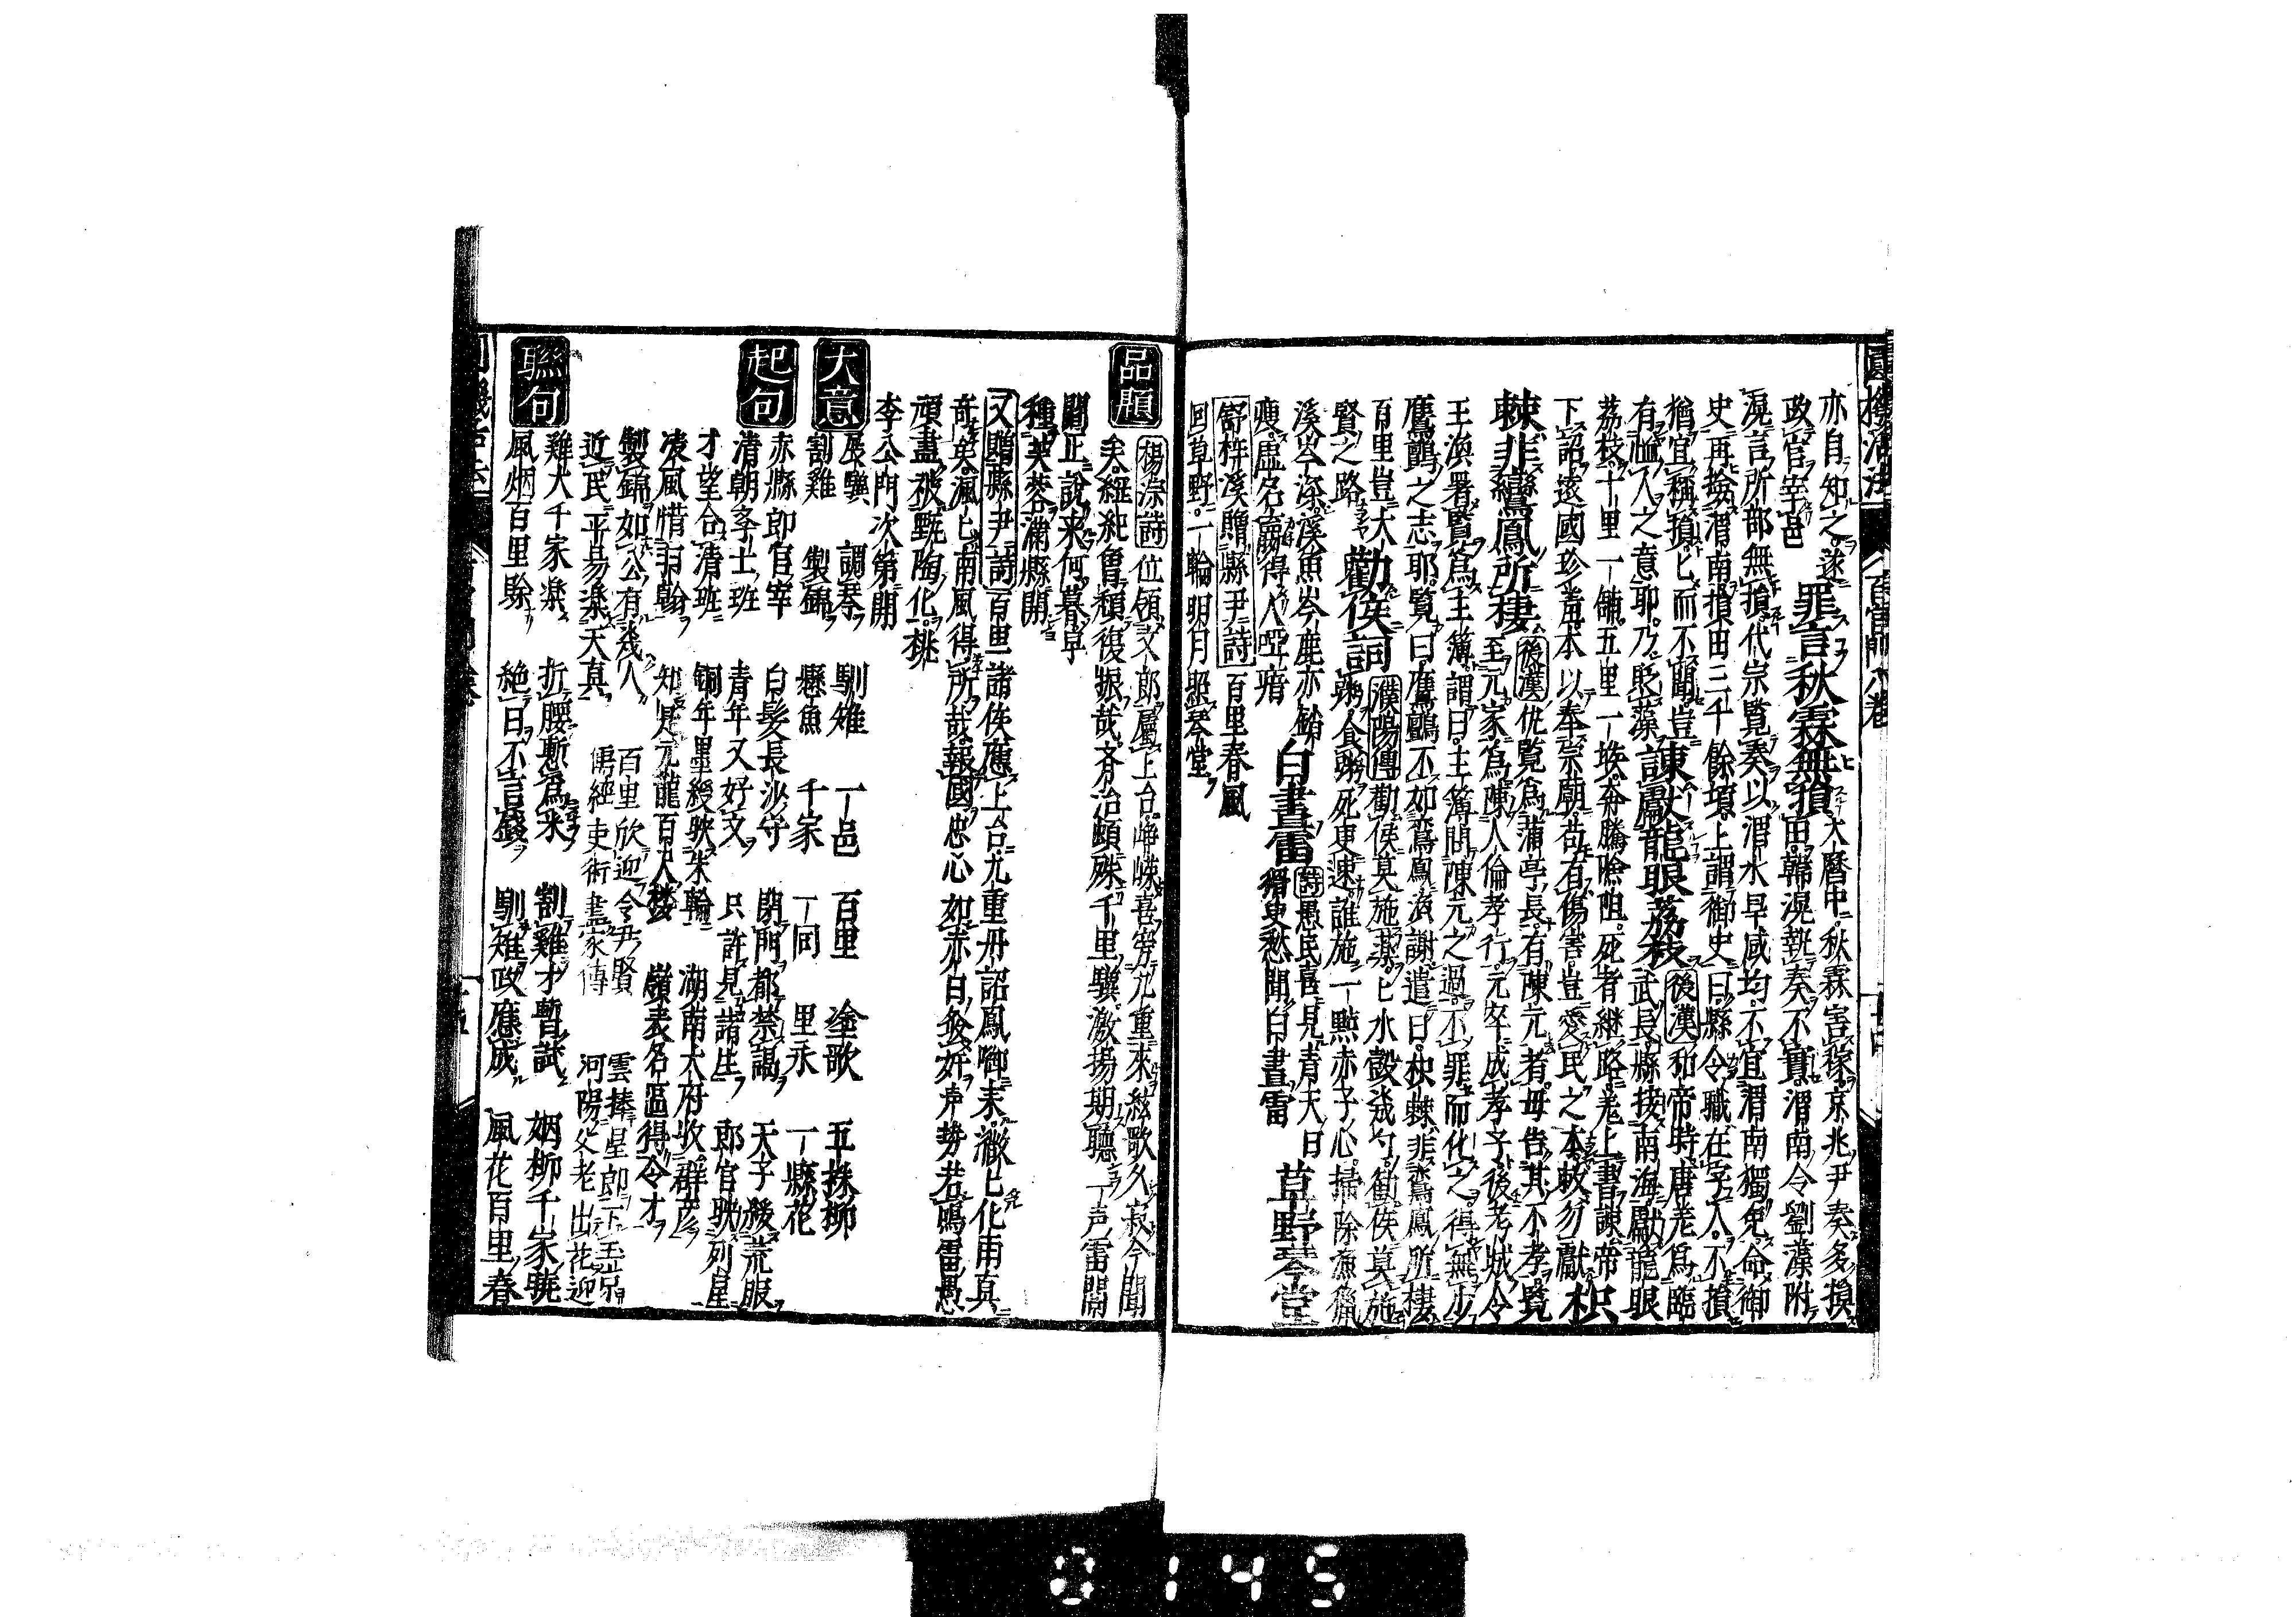 亦自知之遂
政官宰邑 罪言秋霖無損 大曆中秋霖害稼京兆尹奏多損
田韓滉執奏不實渭南令劉藻附
滉言所部無損代宗覽奏以渭水旱咸均不宜渭南獨免命御
史再撿渭南損田三千餘頃上謂御史曰縣令職在字人不損
猶宜稱損匕而不聞豈
有恤人之意耶乃貶藻 諫獻龍眼荔枝 後漢 和帝時唐羌爲臨
武長縣接南海獻龍眼
荔枝十里一鋪五里一堠奔騰險阻死者継路羌上書諫帝
下詔遠國珍羞本以奉宗廟苟有傷害豈愛民之本敕勿獻 枳
棘非鸞鳳所棲 後漢 仇覽爲蒲亭長有陳元者毋告其不孝覽
至元家爲陳人倫孝行元卒成孝子後考城令
王渙署覽爲主簿謂曰主簿聞陳元之過不罪而化之得無少
鷹鸇之志耶覽曰鷹鸇不如鸞鳳渙謝遣曰枳棘非鸞鳳所棲
百里豈大
賢之路 勸侯詞 濮陽傳 勸侯莫施藥匕水殺
溪魚死更速誰施一點赤子心掃除漁獵
溪岑深溪魚岑鹿亦
瘦虛名贏得人啞瘖 白晝雷 詩 愚民喜見青天日
猾吏愁聞白晝雷 草野琴堂
舒梓溪贈縣尹詩 百里春風
回草野一輪明月照琴堂
品題 楊深詩 位領文郎屬上台崢嶸喜旁九重來絃歌久寂今聞
矣紐紀曾頹復振哉斉治頗殊千里驥激揚期聽一声雷閙
閙正說来何暮早
種芙蓉滿縣開
又贈縣尹詩 百里諸侯應上台九重丹詔鳳啣来澈匕化雨真
奇矣渢匕南風得所哉報國忠心如赤日僉奸声勢若鳴雷愚
頑盡被甄陶化桃
李公門次第開
大意 展驥 調琴 馴雉 一邑 百里 塗歌 五株柳
割雞 製錦 懸魚 千家 一同 里永 一縣花
起句 赤縣即官宰 白髮長沙守 閉門都禁謁 天子綏荒服
清朝多士班 青年又好文 只許見諸生 郎官映列星
才望合清班 銅年墨綬映朱輪 湖南大府收群彦
凌風惜羽翰 知是元龍百尺樓 嶺表名區得令才
製錦如公有幾人 百里欣迎令尹賢 雲捧星郎下玉京
近民平易樂天真 儒經吏術盡家傳 河陽父老出花迎
聯句 雞犬千家樂 折腰慙爲米 割雞才暫試 烟柳千家曉
風烟百里賒 絶口不言錢 馴雉政應成 風花百里春